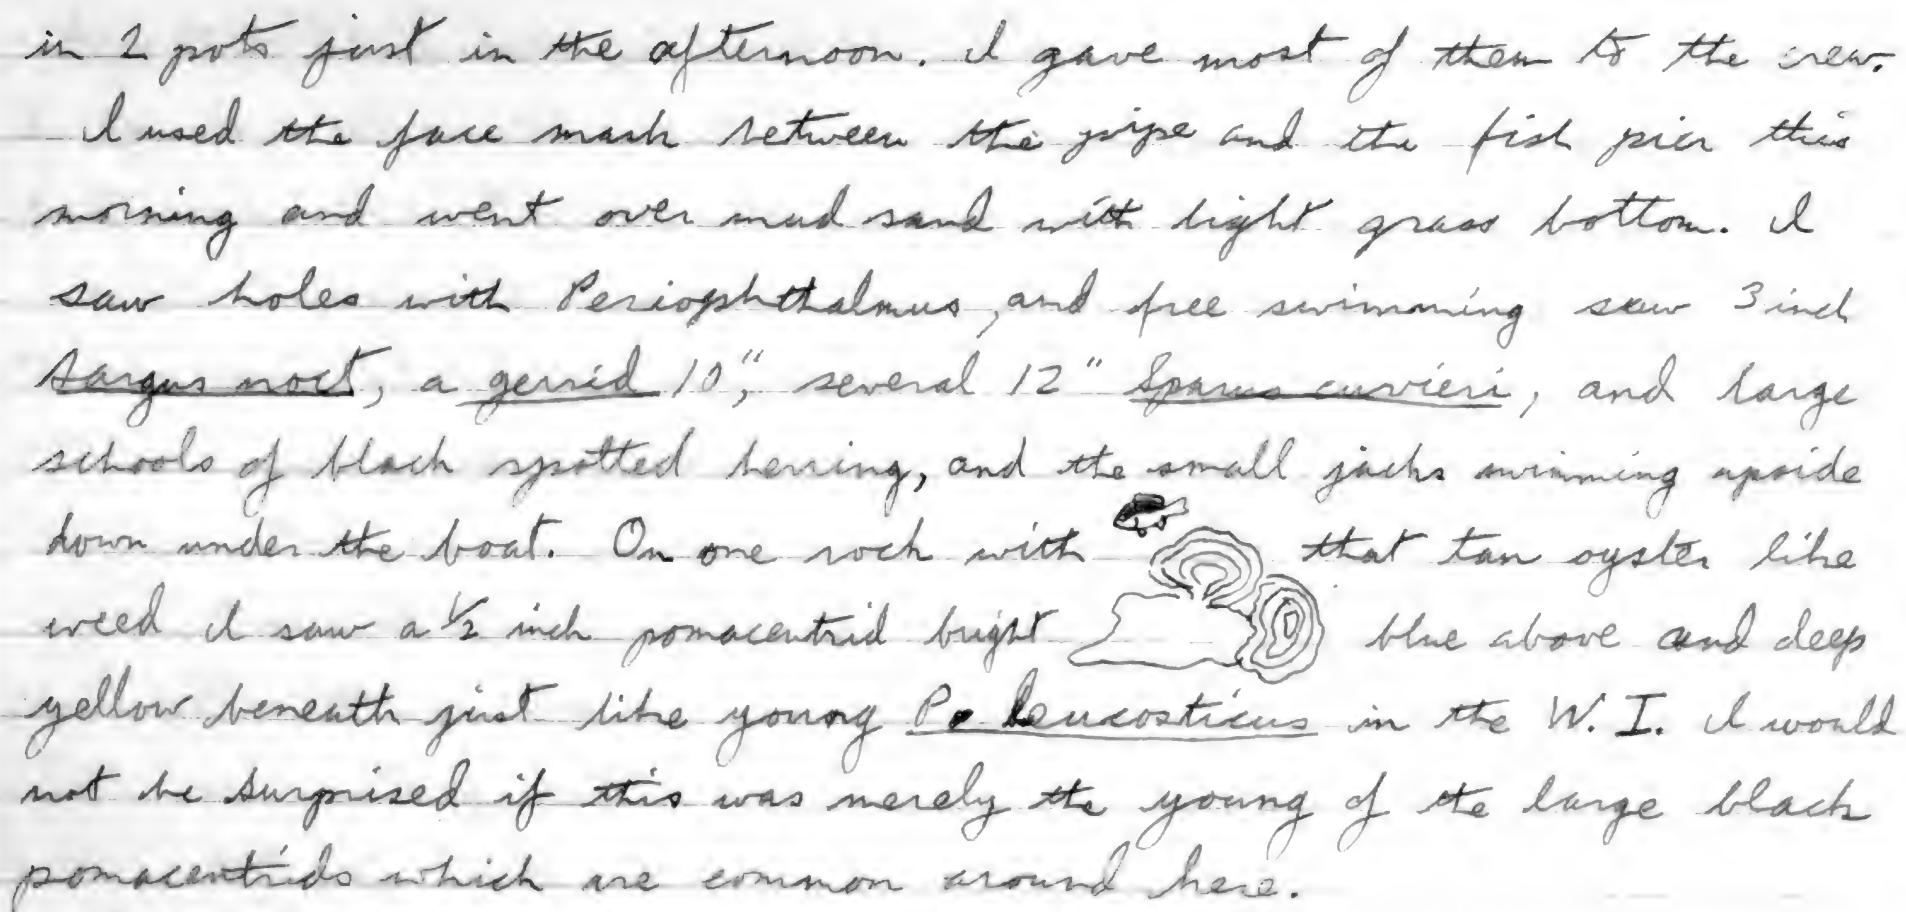 in 2 pots just in the afternoon. I gave most of them to the crew.
I used the face mask between the pipe and the fish pier this
morning and went over mud sand with light grass bottom. I
saw holes with Periophthalmus, and free swimming saw 3 inch
Sargus noct, a gerrid 10", several 12" Sparus cuvieri, and large
schools of black spotted herring, and the small jacks swimming upside
down under the boat. On one rock with that tan oyster like
weed I saw a ½ inch pomacentrid bright blue above and deep
yellow beneath just like young P. leucosticus in the W. I. I would
not be surprised if this was merely the young of the large black
pomacentrids which are common around here.